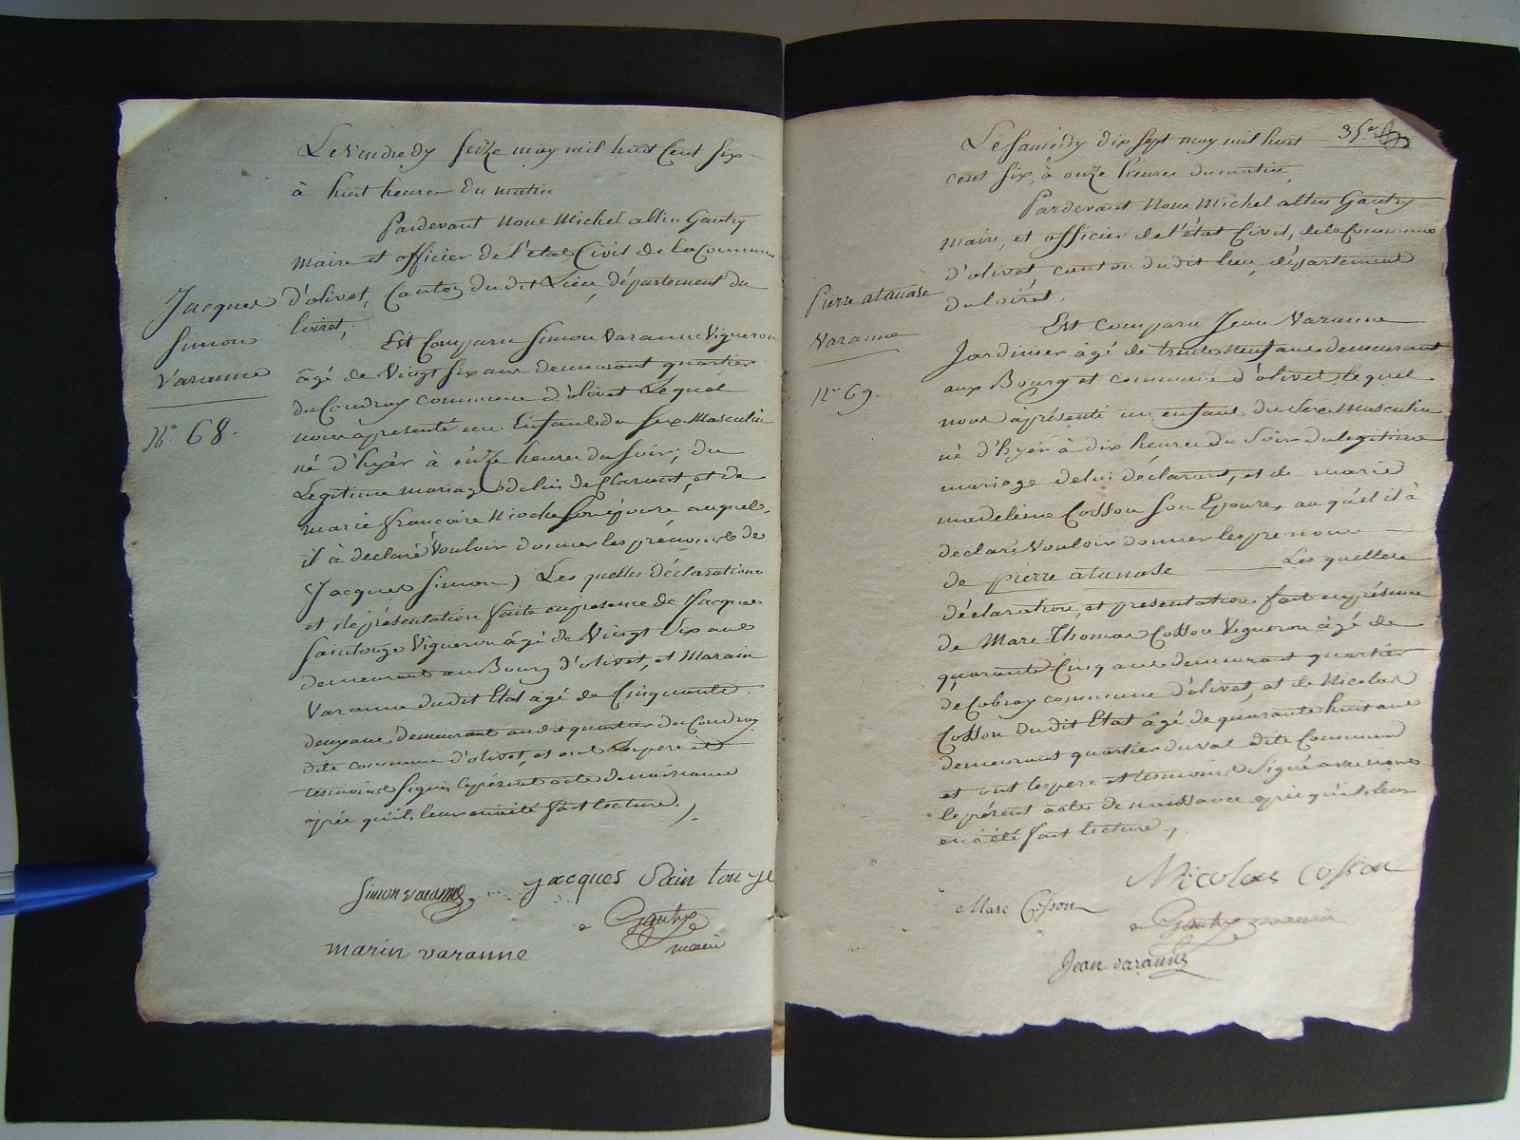 Le Vendredy seize may mil huit Cent six
à huit heures du matin
Pardevant Nous Michel allin Gautry
Maire et officier de l'état Civil de la Commune
d'olivet, Canton du dit Lieu, département du
loiret,
Est Comparu Simon Varanne Vigneron
âgé de Vingt six ans demeurant quartier
du Coudray commune d'olivet Lequel
nous à présenté un Enfant du sexe Masculin
né d'hyer à onze heures du soir, du
Legitime mariage de lui declarant, et de
marie françoise Nioche son épouse auquel
il à declaré Vouloir donner les prénoms de
(Jacques Simon) Les quelles déclarations
et représentation faite en presence de Jacques
Saintouge Vigneron âgé de Vingt six ans
demeurant au Bourg d'olivet, et Marain
Varanne du dit Etat âgé de Cinquante
deux ans demeurant au dit quartier du Coudray
dite commune d'olivet, et ont les pere et
temoins Signés le présent acte de naissance
après qu'il leur en a été fait lecture,
Jacques
Simon
Varanne
N° 68.
Simon varanne jacques Saintouge
Gautry
maire
marin varanne
35e
Le Samedy dix sept may mil huit
cent six, à onze heures du matin,
Pardevant Nous Michel allin Gautry
Maire, et officier de l'état Civil, de la Commune
d'olivet canton du dit lieu, département
du loiret.
Est comparu Jean Varanne
Jardinier âgé de trente neuf ans demeurant
aux Bourg et commune d'olivet, lequel
nous à présenté un enfant du Sexe Masculin
né d'hyer à dix heures du soir du legitime
mariage de lui déclarant, et de marie
madeleine Cosson son Epouse, au quel il à
declaré Vouloir donner les prenoms
de pierre atanase Les quelles
déclaration, et presentation fait en présence
de Marc Thomas Cosson Vigneron âgé de
quarante Cinq ans demeurant quartier
de Cobray commune d'olivet, et de Nicolas
Cosson du dit Etat âgé de quarante huit ans
demeurant quartier du val dite Commune
et ont les pere et temoins Signé avec nous
le présent acte de naissance après qu'il leur
en à été fait lecture,
Pierre atanase
Varanne
N° 69.
Nicolas Cosson
Marc Cosson
Gautry maire
Jean varanne